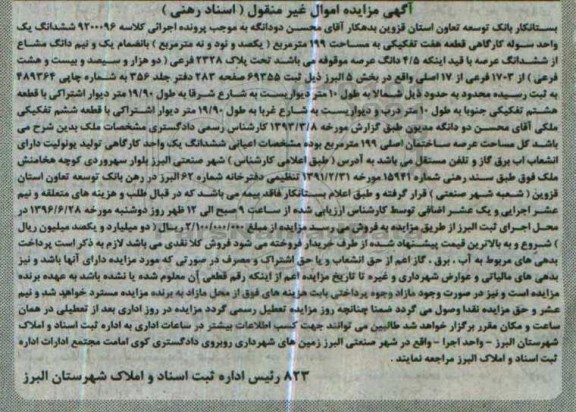 آگهی مزایده اموال غیر منقول ( اسناد رهنی )
بستانکار بانک توسعه تعاون استان قزوین بدهکار آقای محسن دودانگه به موجب پرونده اجرائی کلاسه ۹۲۰۰۰۹۶ ششدانگ یک
واحد سوله کارگاهی قطعه هفت تفکیکی به مساحت ۱۹۹ مترمربع ( یکصد و نود و نه مترمربع ) بانضمام یک و نیم دانگ مشاع
از ششدانگ عرصه با قید اینکه ۴/۵ دانگ عرصه موقوفه می باشد تحت پلاک ۲۳۲۸ فرعی ( دو هزار و سیصد و بیست و هشت
فرعی ) از ۱۷۰۳ فرعی از ۱۷ اصلی واقع در بخش ۵ البرز ذیل ثبت ۶۹۳۵۵ صفحه ۲۸۳ دفتر جلد ۳۵۶ به شماره چاپی ۴۸۹۳۶۴
به ثبت رسیده محدود به حدود ذیل شمالا به طول ۱۰ متر دیواریست به شارع شرقا به طول ۱۹/۹۰ متر دیوار اشتراکی با قطعه
هشتم تفکیکی جنوبا به طول ۱۰ متر درب و دیواریست به شارع غربا به طول ۱۹/۹۰ متر دیوار اشتراکی با قطعه ششم تفکیکی
ملکی آقای محسن دو دانگه مدیون طبق گزارش مورخه ۱۳۹۳/۳/۸ کارشناس رسمی دادگستری مشخصات ملک بدین شرح می
باشد کل مساحت عرصه ساختمان اصلی ۱۹۹ مترمربع بوده مشخصات اعیانی ششدانگ یک واحد کارگاه تولید یونولیت دارای
انشعاب آب برق گاز و تلفن مستقل می باشد به آدرس ( طبق اعلامی کارشناس ) شهر صنعتی البرز بلوار سهروردی کوچه هخامنش
ملک فوق طبق سند رهنی شماره ۱۵۹۴۱ مورخه ۱۳۹۱/۲/۳۱ تنظیمی دفترخانه شماره ۶۲ البرز در رهن بانک توسعه تعاون استان
قزوین ( شعبه شهر صنعتی ) قرار گرفته و طبق اعلام بستانکار فاقد بیمه می باشد که در قبال طلب و هزینه های متعلقه و نیم
عشر اجرایی و یک عشر اضافی توسط کارشناس ارزیابی شده از ساعت ۹ صبح الی ۱۲ ظهر روز دوشنبه مورخه ۱۳۹۶/۶/۲۸ در
محل اجرای ثبت البرز از طریق مزایده به فروش می رسد مزایده از مبلغ ۲/۱۰۰/۰۰۰/۰۰۰ ریال ( دو میلیارد و یکصد میلیون ریال
) شروع و به بالاترین قیمت پیشنهاد شده از طرف خریدار فروخته می شود فروش کلا نقدی می باشد لازم به ذکر است پرداخت
بدهی های مربوط به آب ، برق ، گاز اعم از حق انشعاب و یا حق اشتراک و مصرف در صورتی که مورد مزایده دارای آنها باشد و نیز
بدهی های مالیاتی و عوارض شهرداری و غیره تا تاریخ مزایده اعم از اینکه رقم قطعی آن معلوم شده یا نشده باشد به عهده برنده
مزایده است و نیز در صورت وجود مازاد وجوه پرداختی بابت هزینه های فوق از محل مازاد به برنده مزایده مسترد خواهد شد و نیم
عشر و حق مزایده نقدا وصول می گردد ضمنا چنانچه روز مزایده تعطیل رسمی گردد مزایده در روز اداری بعد از تعطیلی در همان
ساعت و مکان مقرر برگزار خواهد شد طالبین می توانند جهت کسب اطلاعات بیشتر در ساعات اداری به اداره ثبت اسناد و املاک
شهرستان البرز - واحد اجرا - واقع در شهر صنعتی البرز زمین های شهرداری روبروی دادگستری کوی امامت مجتمع ادارات اداره
ثبت اسناد و املاک البرز مراجعه نمایند .
۸۲۳ رئیس اداره ثبت اسناد و املاک شهرستان البرز